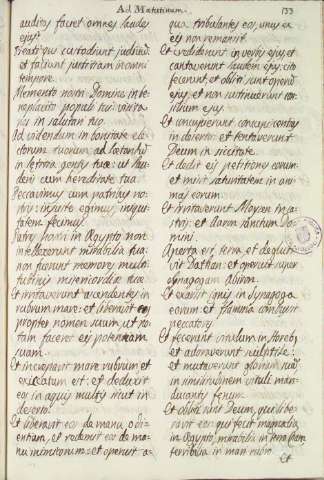 Ad Matutinum.
133
auditas faciet omnes laudes
ejus?
Beati qui custodiunt judiciū:
et faciunt justitiam in omni
tempore.
Memento nostri Domine in be-
neplacito populi tui: visita
nos in salutari tuo.
Ad videndum in bonitate ele-
ctorum tuorum, ad lætandū
in lætitia gentis tuæ: ut lau-
deris cum hereditate tua.
Peccavimus cum patribus no-
stris: injuste egimus, iniqui-
tatem fecimus.
Patres nostri in Ægypto non
intellexerunt mirabilia tua:
non fuerunt memores multi-
tudinis misericordiæ tuæ.
Et irritaverunt ascendentes in
rubrum mare: et liberavit eos
propter nomen suum, ut no-
tam faceret potentiam
suam.
Et increpavit mare rubrum, et
exiccatum est: et deduxit
eos in aquis multis sicut in
deserto.
Et liberavit eos de manu odi-
entium, et redemit eos de ma-
nu inimicorum: et operuit a-
qua tribulantes eos, unus ex
eis non remansit.
Et crediderunt in verbis ejus, et
cantaverunt laudem ejus: cito
fecerunt, et obliti sunt operū
ejus, et non sustinuerunt con-
silium ejus.
Et concupierunt concupiscentias
in deserto: et tentaverunt
Deum in siccitate.
Et dedit eis petitiones eorum:
et misit saturitatem in ani-
mas eorum.
Et irritaverunt Moysen in ca-
stris: et Aaron sanctum Do-
mini.
Aperta est terra, et deglutit-
vit Dathan: et operuit super
synagogam Abiron.
Et exarsit ignis in synagoga
eorum: et flamma combussit
peccatores.
Et fecerunt vitulum in Horeb,
et adoraverunt sculptile:
et mutaverunt gloriam suā
in similitudinem vituli man-
ducantis fenum.
Et obliti sunt Deum, qui libe-
ravit eos: qui fecit magnalia
in Ægypto, mirabilia in terra Cham
terribilia in mari rubro.
Et